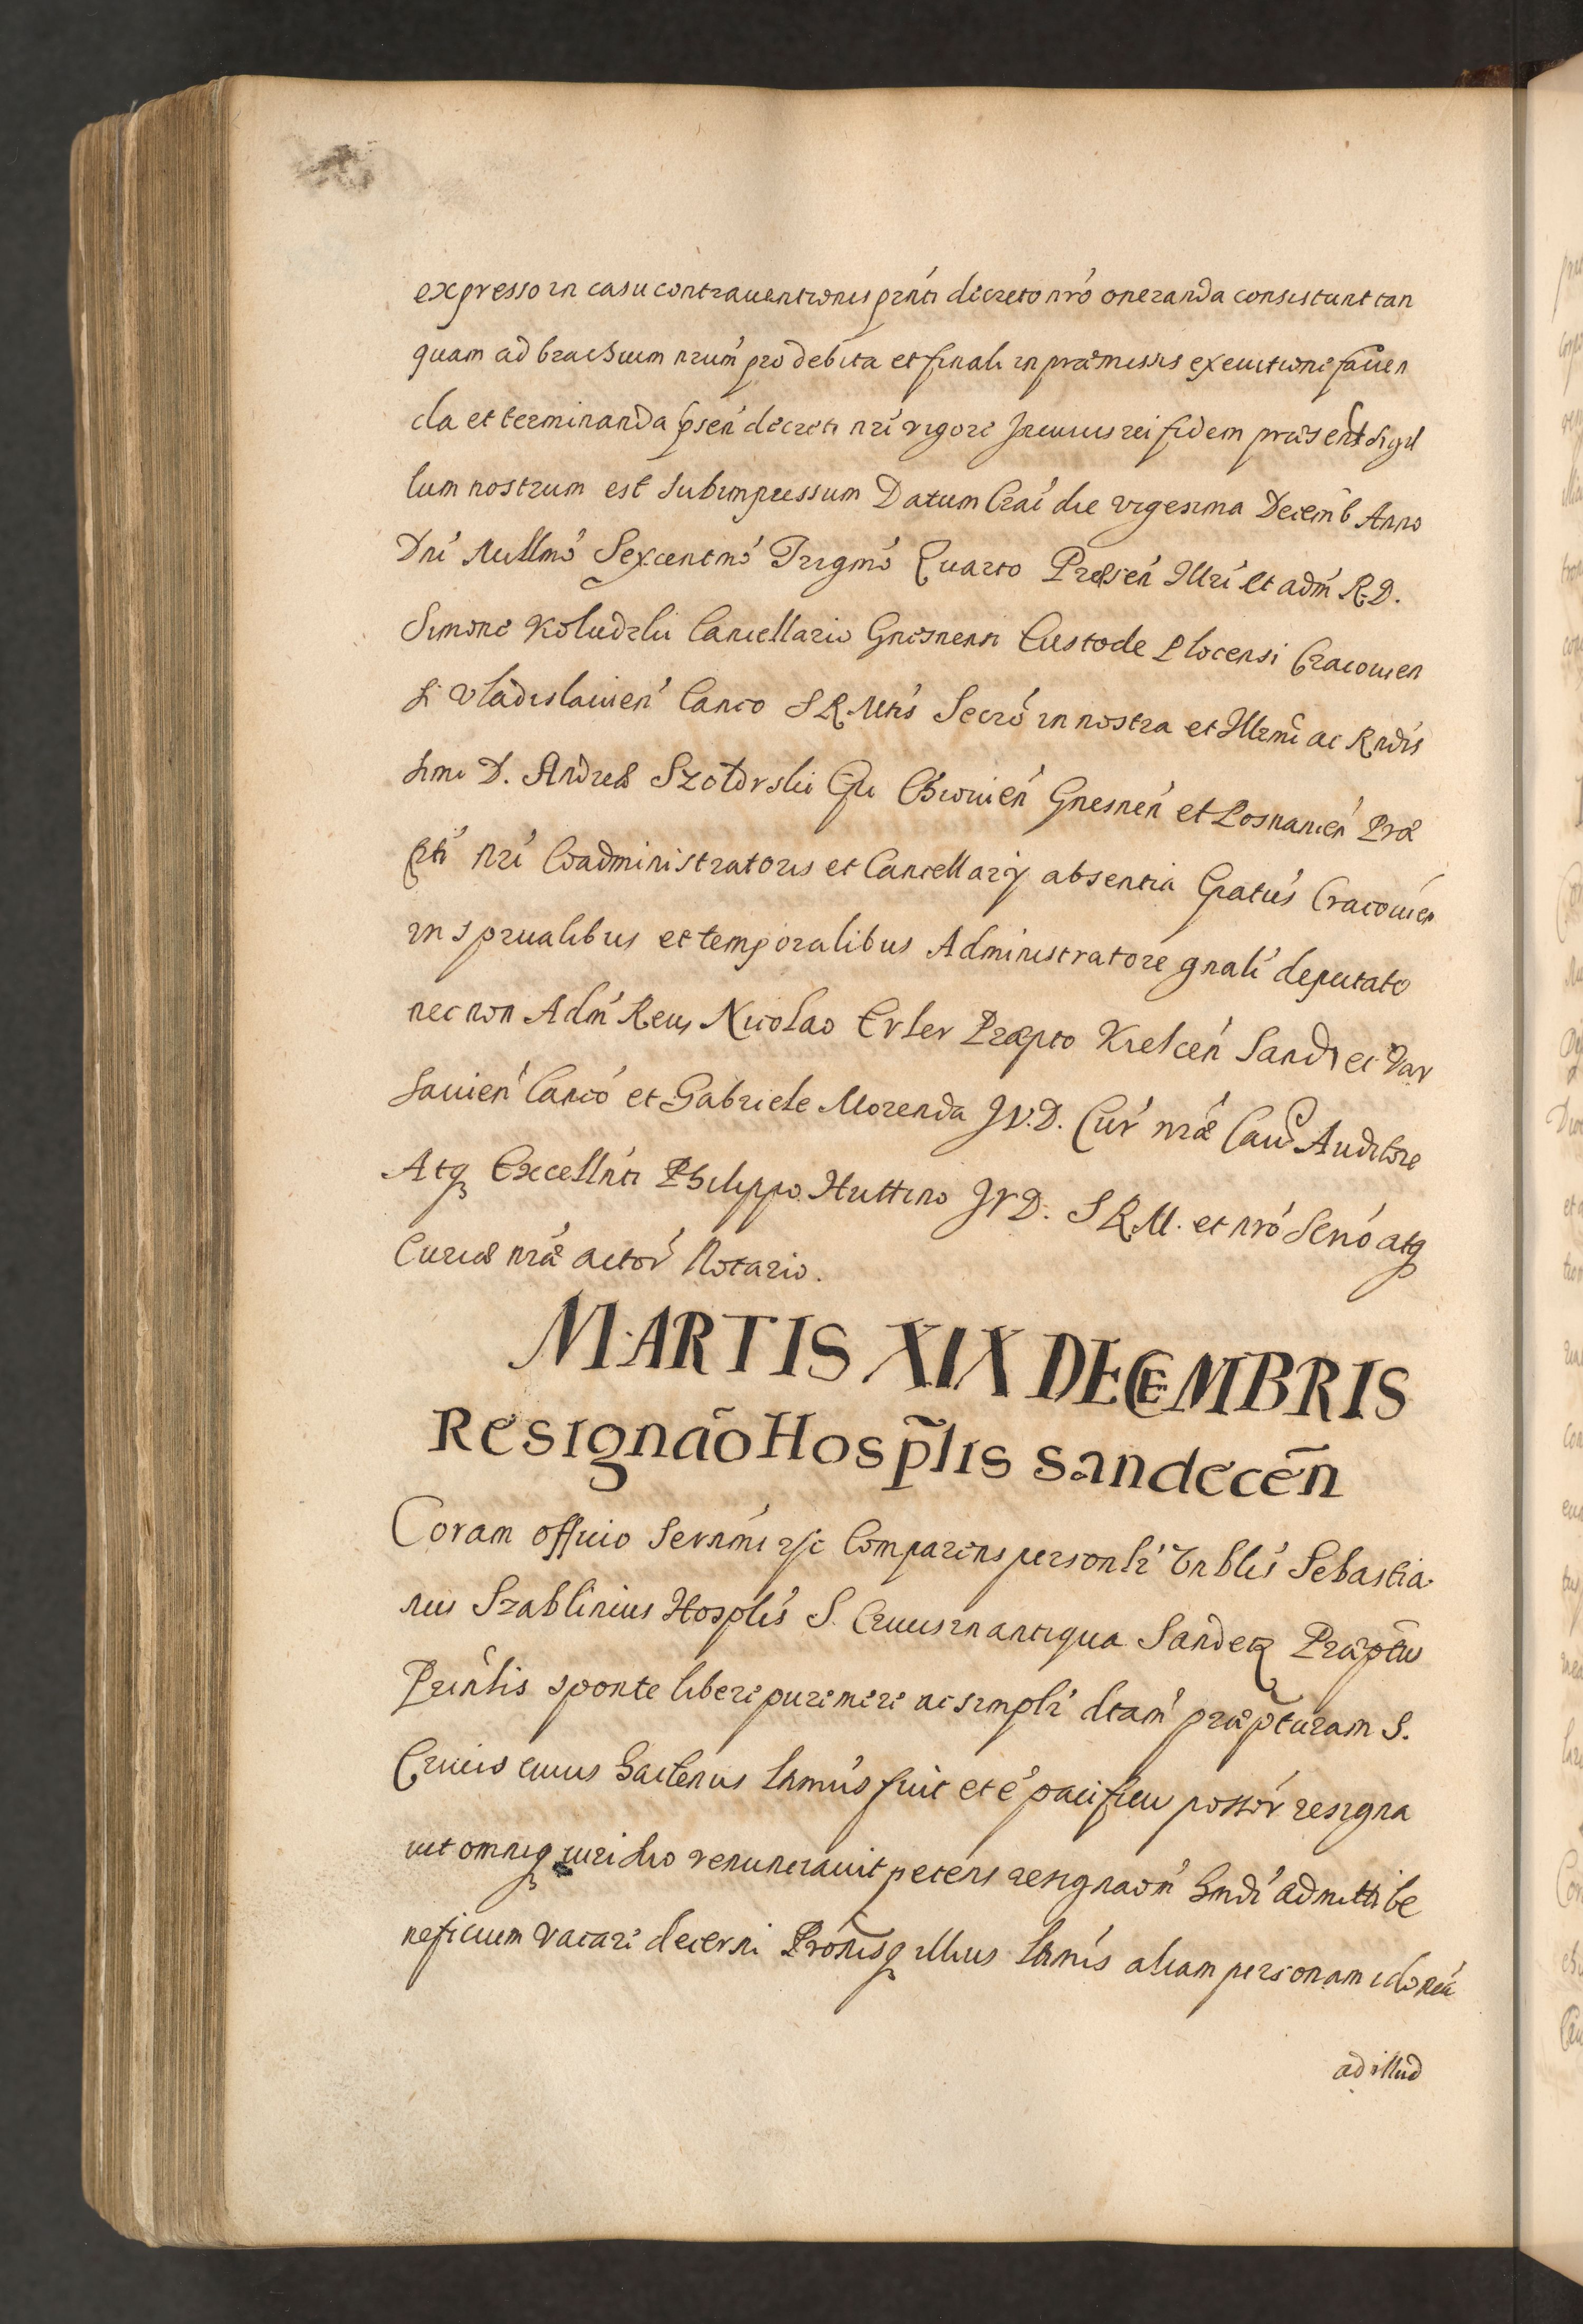 expresso in casu contrauentionis pr̃nti decreto nro' oneranda consistunt tan
quam ad brachium nrum' pro debita et finali in præmissis executione facien
da et terminanda psen' decreti nri' vigore In cuius rei fidem præsent sigil
lum nostrum est subimpressum Datum Crai' die vigesima Decemb Anno
Dni' Millmo' Sexcentmo' Trigmo' Quarto Præsen' Illri' et adm' R.D.
Simone Koludzki Cancellario Gnesnensi Custode Plocensi Cracouien
si Vladislauien' Canco S R Mtis' Secro' in nostra et Illrmi ac Rndis
simi D. Andreæ Szołdrski Epi Chiouien' Gnesnen' et Posnanien' Præ
pti' nri' Coadministratoris et Cancellarij absentia Epatus' Cracouien
in sprualibus et temporalibus Administratore gnali' deputato
nec non Adm' Reus Nicolao Erler Præpto Kielcen' Sand et Var
sauien' Canco' et Gabriele Morenda JV.D. Cur' nræ' Caus Auditore
Atq Excellnti' Philippo Huttino JVD. S R.M. et nro' Secro' atq
Curiæ nræ' actor' Notario.
MARTIS XIX DECEMBRIS
Resignão Hosp̃lis sandecen̄
Coram officio Sernmi' etc Comparens personlr' Vnblis' Sebastia
nus Szablinius Hosplis' S. Crucis in antiqua Sandecz Præptus
Prinlis sponte libere pure mere ac simplr' dtam' præpturam S.
Crucis cuius hactenus lrmus' fuit et e' pacificus possor' resigna
uit omniq iuri suo renunciauit petens resignaom' hmdi' admitti be
neficium vacare decerni Prouisq illius lrmis' aliam personam idonea'
ad illud